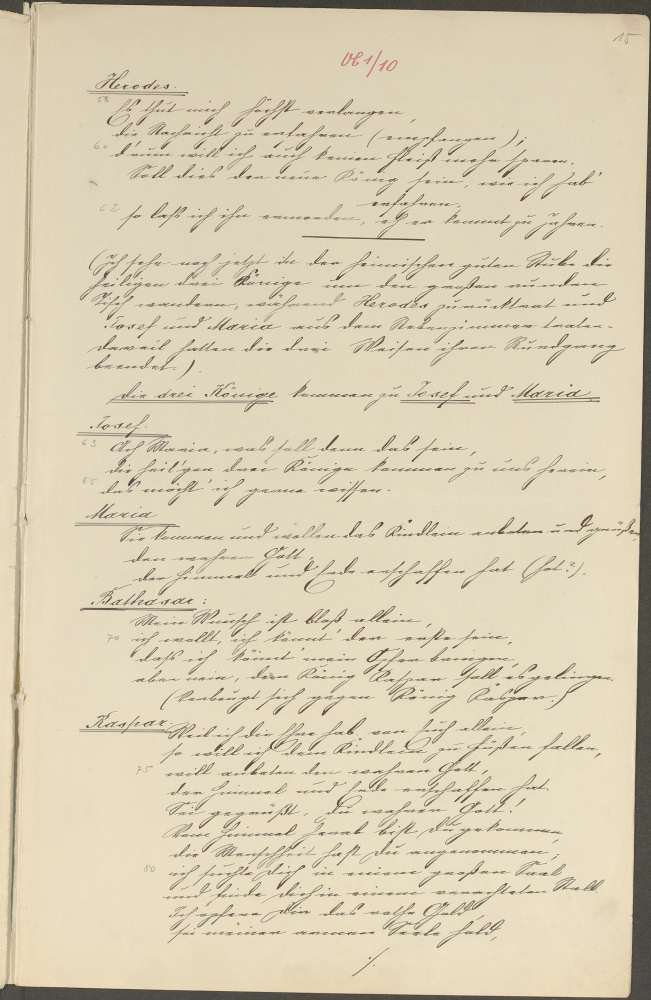 15
VI 1/10
Herodes.
58 Es thut mich höchst verlangen,
die Nachricht zu erfahren (empfangen);
60 d'rum will ich auch keinen Fleiß mehr sparen.
Soll dies der neue König sein, wie ich hab'
erfahren,
62 so laß ich ihn ermorden, eh' er kommt zu Jahren.
(Ich sehe noch jetzt in der heimischen guten Stube die
heiligen drei Könige um den großen runden
Tisch wandern, während Herodes zurücktrat und
Josef und Maria aus dem Nebenzimmer traten.
Derweil hatten die drei Weisen ihren Rundgang
beendet.)
Die drei Könige kommen zu Josef und Maria.
Josef.
63 Ach Maria, was soll denn das sein,
die heil'gen drei Könige kommen zu uns herein,
65 das möcht' ich gerne wissen.
Maria
Sie kommen und wollen das Kindlein anbeten und grüßen,
den wahren Gott,
der Himmel und Erde erschaffen hat (hot?).
Balthasar:
Mein Wunsch ist bloß allein,
70 ich wollt, ich könnt' der erste sein,
daß ich könnt' mein Opfer bringen,
aber nein, dem König Kaspar soll es gelingen.
(Verbeugt sich gegen König Kaspar.)
Kaspar. Weil ich die Ehre hab' von Euch allein,
so will ich dem Kindlein zu Füßen fallen,
75 will anbeten den wahren Gott,
der Himmel und Erde erschaffen hat.
Sei gegrüßt, Du wahrer Gott!
Vom Himmel herab bist Du gekommen,
die Menschheit hast Du angenommen;
80 ich suchte Dich in einem großen Saal
und finde Dich in einem verachteten Stall.
Ich opfere Dir das rothe Gold,
sei meiner armen Seele hold,
./.